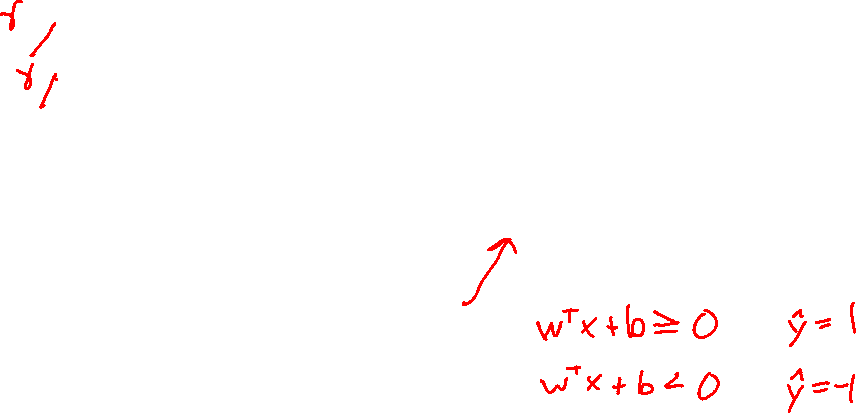 γ
γ
wᵀx + b ≥ 0 ŷ = 1
wᵀx + b < 0 ŷ = -1